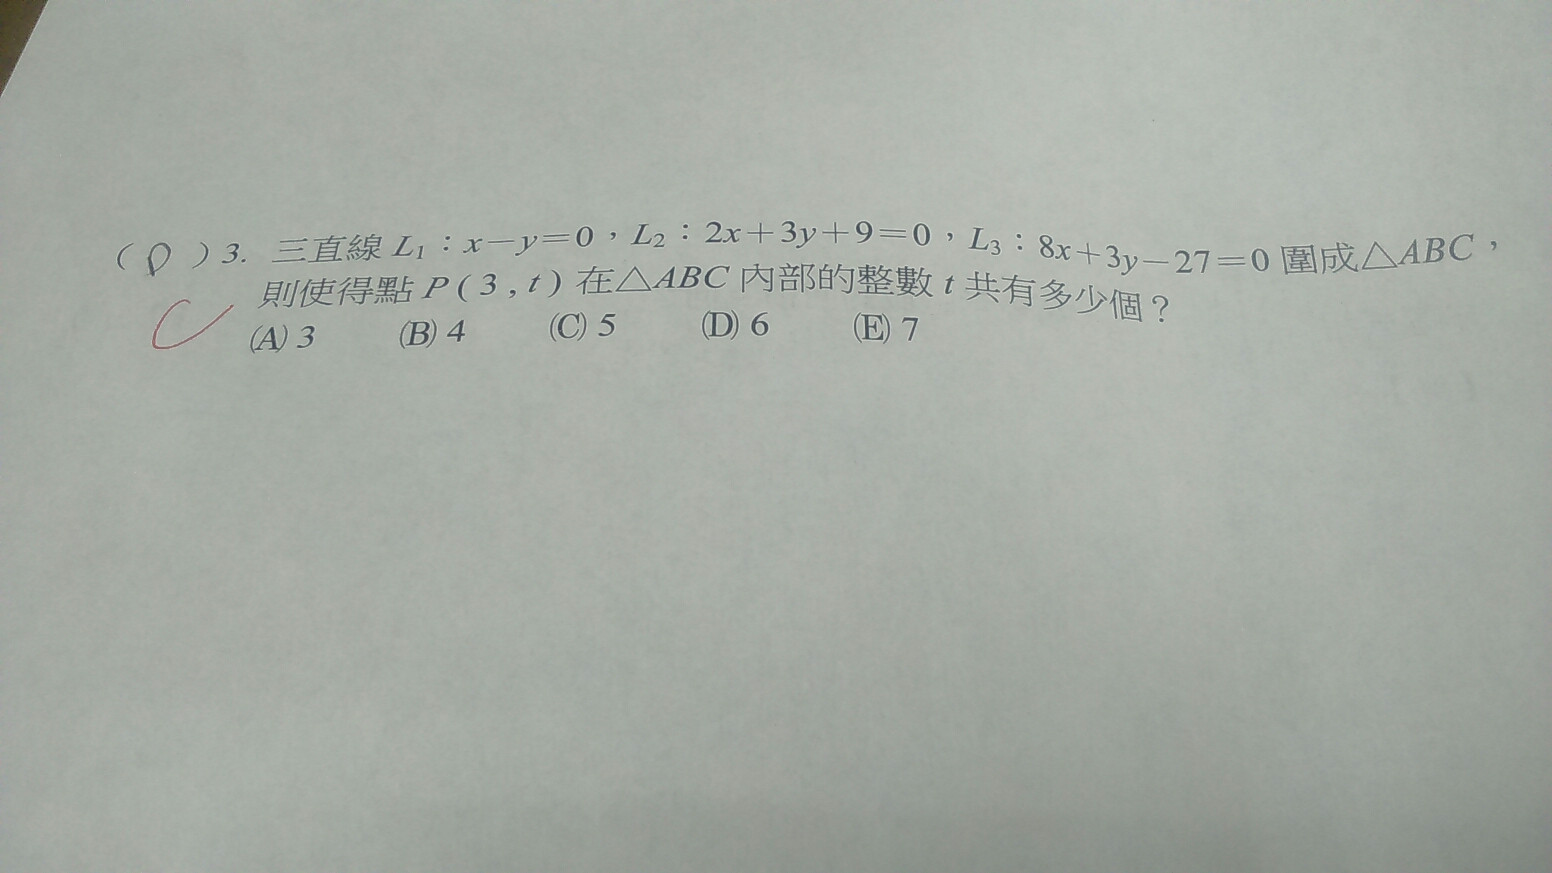 ( D ) 3. 三直線 L₁：x－y＝0，L₂：2x＋3y＋9＝0，L₃：8x＋3y－27＝0 圍成△ABC，
C 則使得點 P ( 3 , t ) 在△ABC 內部的整數 t 共有多少個？
(A) 3 (B) 4 (C) 5 (D) 6 (E) 7